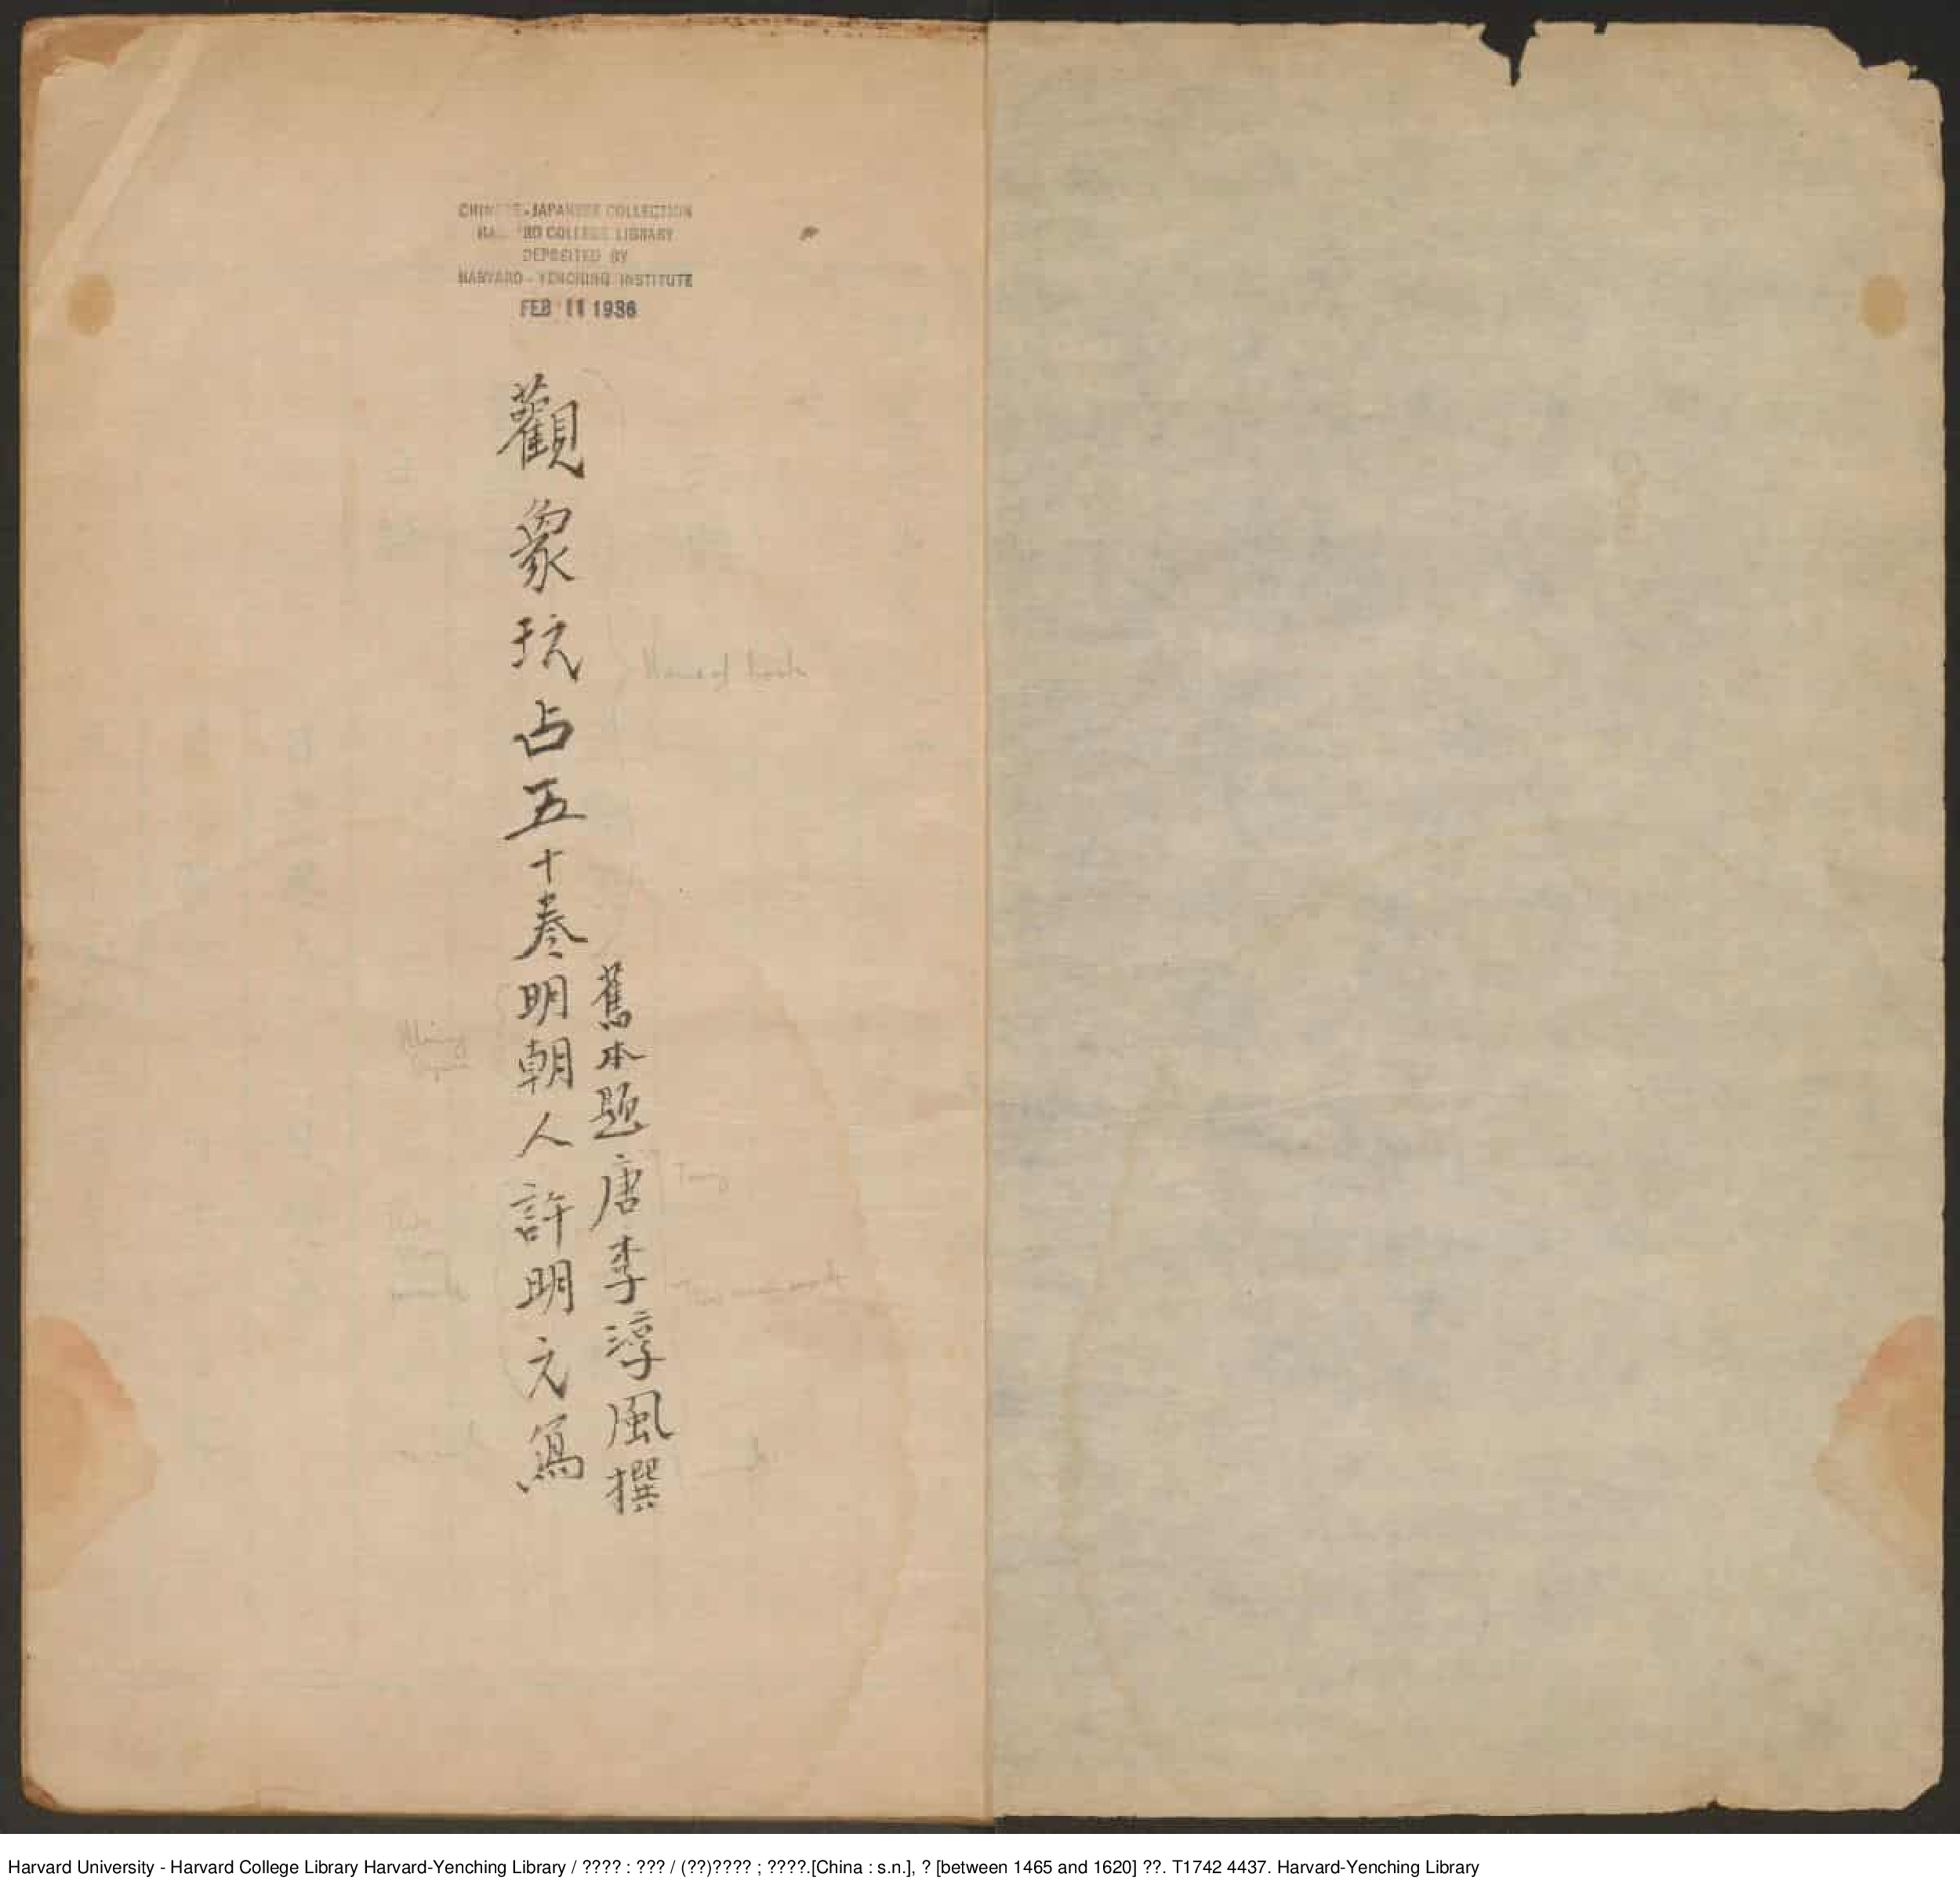 CHINESE-JAPANESE COLLECTION
HARVARD COLLEGE LIBRARY
DEPOSITED BY
HARVARD-YENCHING INSTITUTE
FEB 11 1936
舊本題唐李淳風撰
觀象玩占五十卷明朝人許明元寫
Name of book
Ming
Tang
Harvard University - Harvard College Library Harvard-Yenching Library / ???? : ??? / (??)???? ; ????.[China : s.n.], ? [between 1465 and 1620] ??. T1742 4437. Harvard-Yenching Library